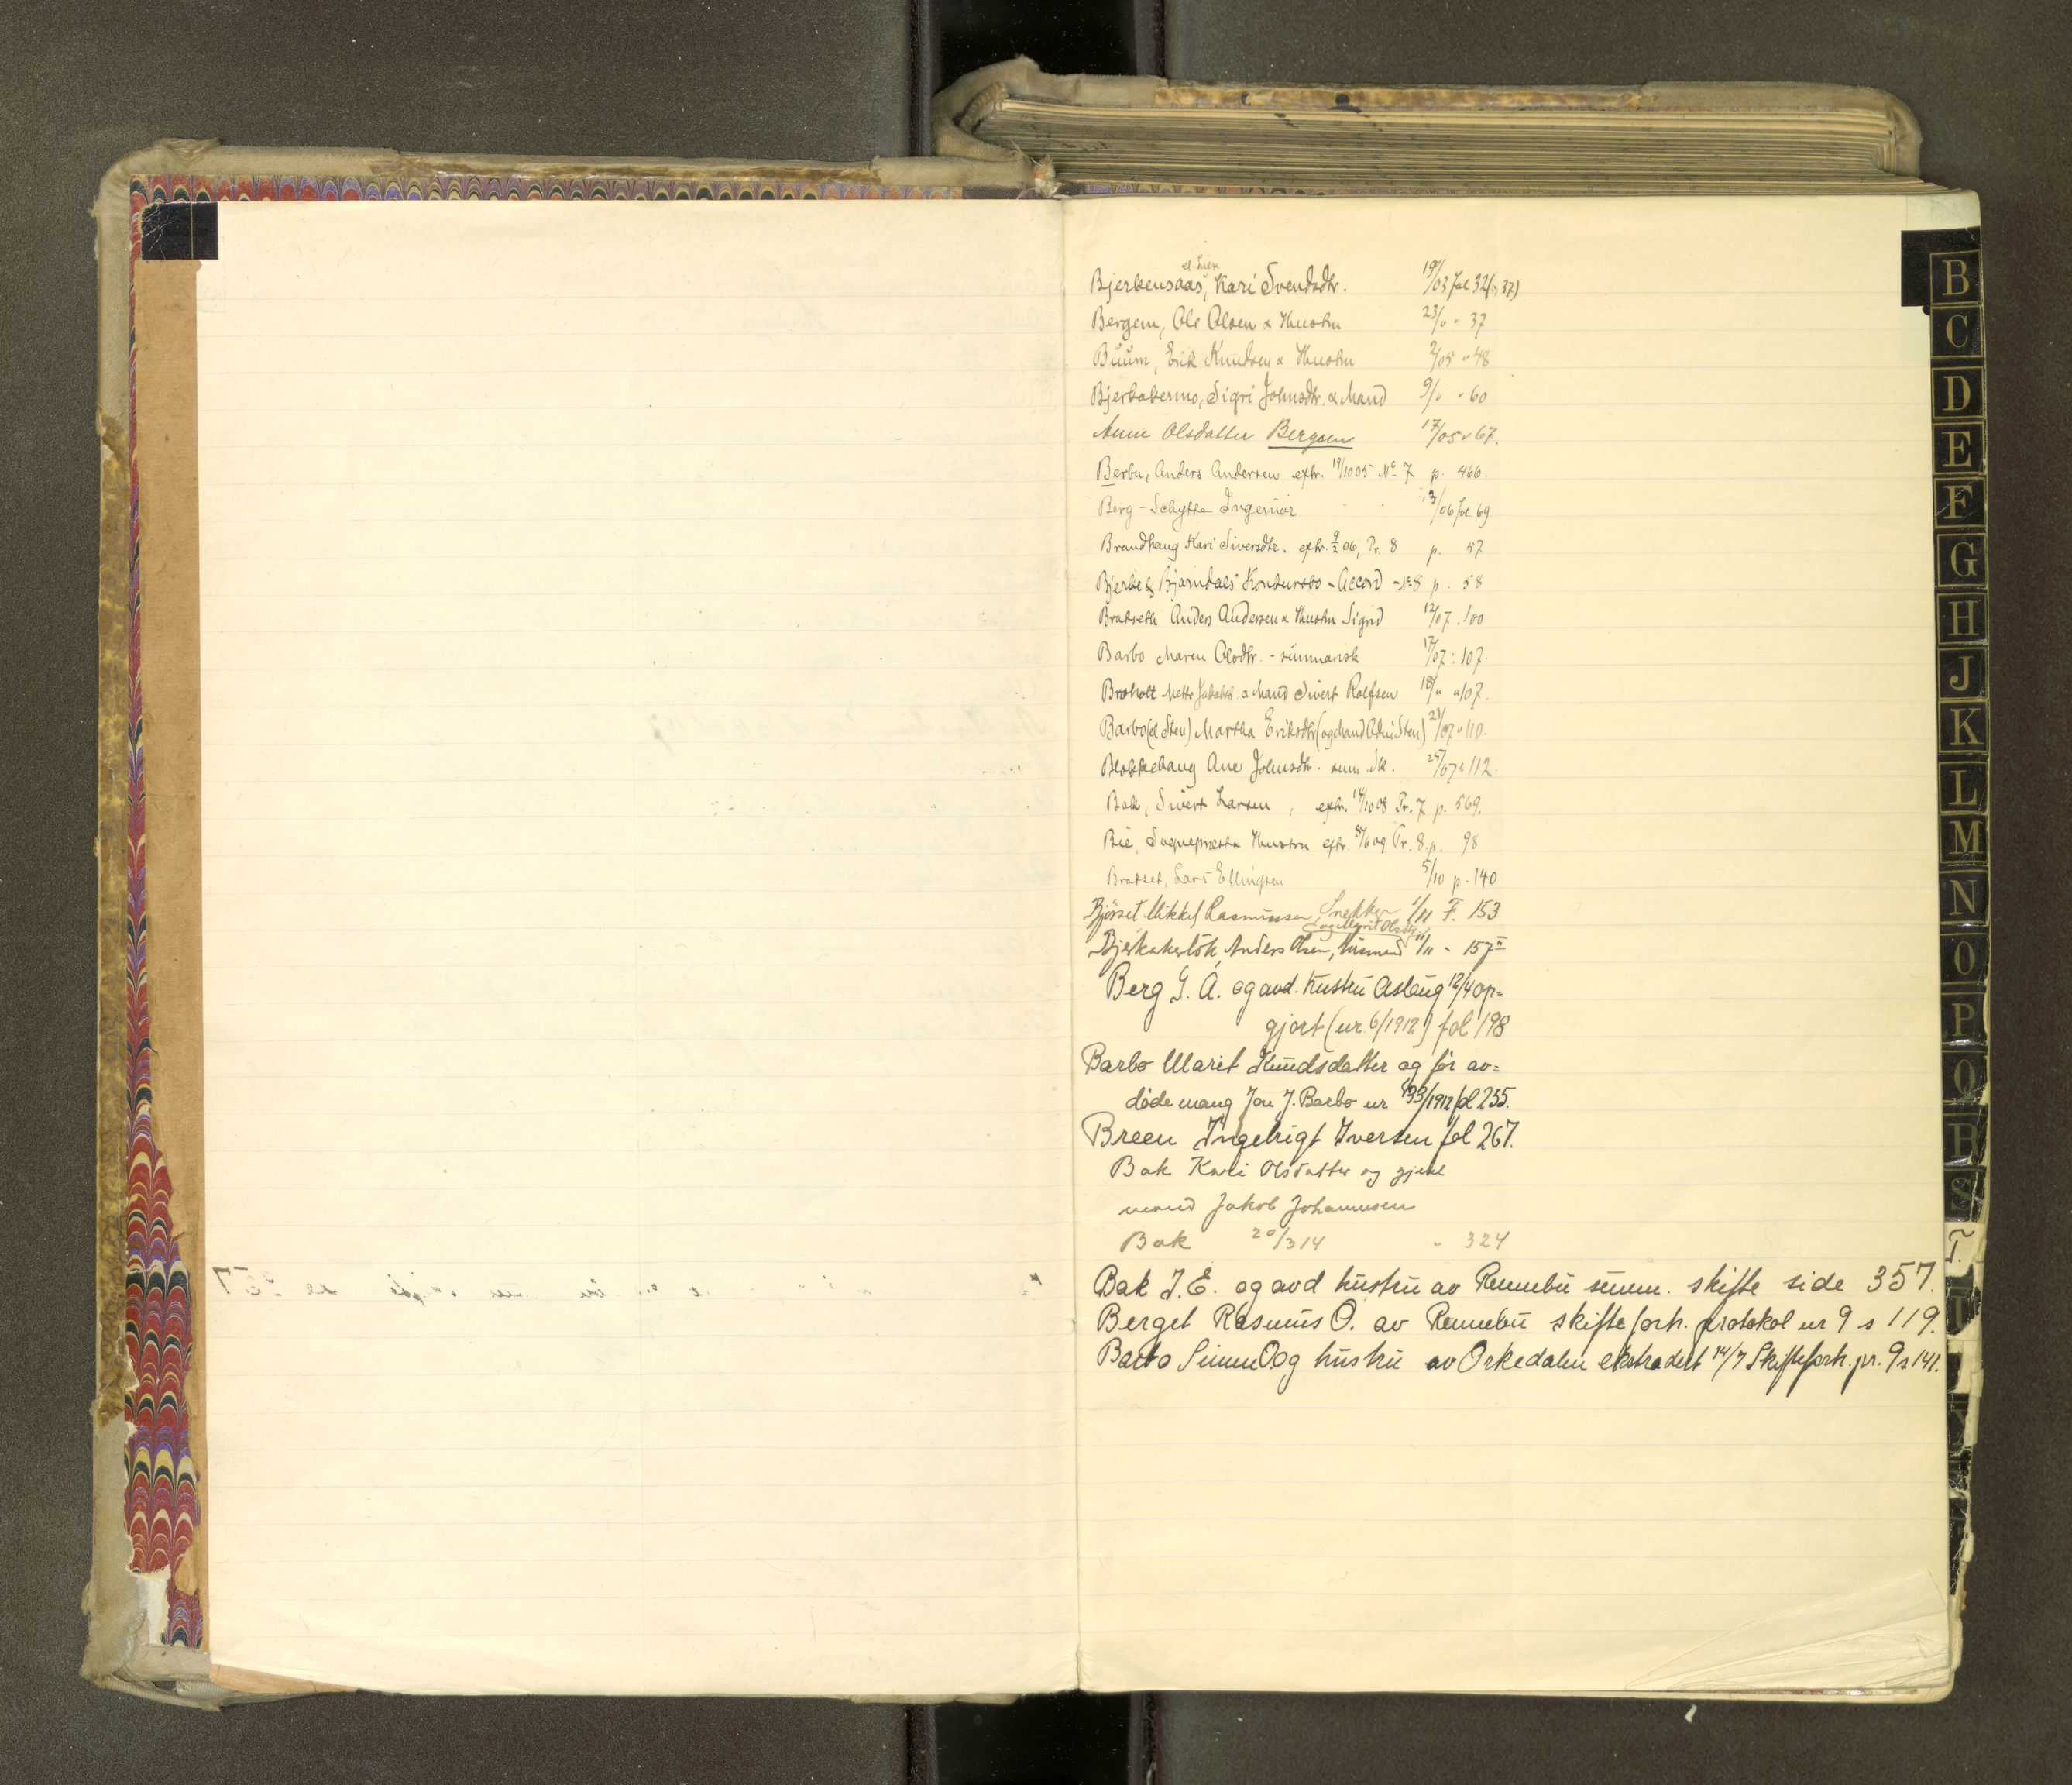 el. Lien
Bjerkensaas, Kari Svendsdtr. 19/03 fol 32 (o. 37)
Bergem, Ole Olsen & Hustru 23/" " 37
Buum, Erik Knudsen & Hustru 2/05 " 48
Bjerkakermo, Sigri Johnsdtr. & Mand 9/" " 60
Anne Olsdatter Bergsem 17/05 " 67.
Berbu, Anders Andersen extr. 19/10 05 No 7 p. 466.
Berg-Schytte Ingeniør 13/06 fol. 69
Brandhaug Kari Siversdtr. extr. 9/2 06, Pr. 8 p. 57
Bjerke & Bjørndals Konkursbo - Accord - No 8 p. 58
Bratseth Anders Andersen & Hustru Sigrid 12/07 . 100
Barbo Maren Olsdtr. - summarisk 17/07 : 107.
Broholt Mette Jakobsd. & Mand Sivert Rolfsen 18/" " 107.
Barbo (el Sten) Martha Eriksdtr (og Mand Sten) 21/07 " 110.
Blokkehaug Ane Johnsdtr. sum. Sk. 25/07 " 112
Bak, Sivert Larsen, extr. 14/10 08 Pr. 7 p. 569.
Bie, Sogneprests Hustru extr. /6 09 Pr. 8. p. 98
Bratset, Lars Ellingsen 5/10 p. 140
Bjørset Mikkel Rasmussen, Snekker 1/11 F. 153
og Marit Olsdtr
Bjerkakerløk, Anders Olsen, husmand /11 - 157"
Berg G. A. og avd. hustru Aslaug 12/4 op-
gjort (nr. 6/1912) fol 198
Barbo Marit Knudsdatter og før av=
døde mang Jon J. Barbo nr 33/1912 fol 255.
Breen Ingebrigt Iversen fol 267.
Bak Kari Olsdatter og gjenl
mand Jakob Johannesen
Bak 20/3 14 " 324
Bak J. E. og avd hustru av Rennebu summ. skifte side 357.
Berget Rasmus O. av Rennebu skifteforh. protokol nr 9 s 119.
Barbo Simen O. og hustru av Orkedalen ekstradert 14/7 Skifteforh. pr. 9 s 141.
B
C
D
E
F
G
H
J
K
L
M
N
O
P
Q
R
S
T.